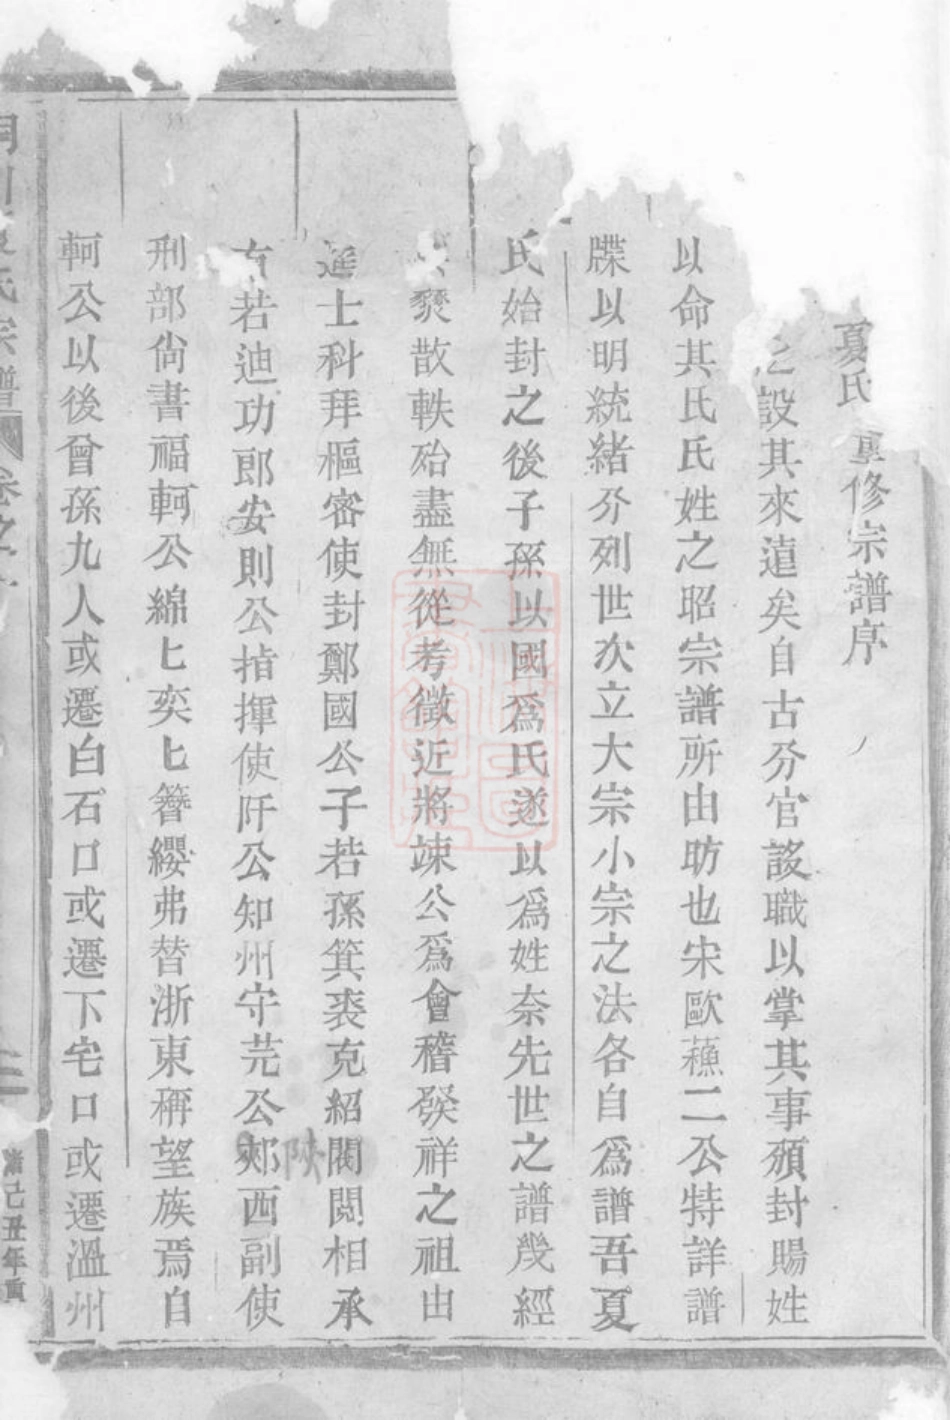 夏氏重修宗譜序
之設其來遠矣自古分官設職以掌其事頒封賜姓
以命其氏氏姓之昭宗譜所由昉也宋歐蘓二公特詳譜
牒以明統緒分列世次立大宗小宗之法各自為譜吾夏
氏始封之後子孫以國為氏遂以為姓奈先世之譜幾經
燹散軼殆盡無從考徵近將竦公為會稽發祥之祖由
進士科拜樞密使封鄭國公子若孫箕裘克紹閥閱相承
若迪功郎安則公指揮使阡公知州守芫公郟西副使
陝
刑部尚書福軻公綿匕奕匕簪纓弗替浙東稱望族焉自
軻公以後曾孫九人或遷白石口或遷下宅口或遷溫州
氏宗譜 卷之
清己丑年重